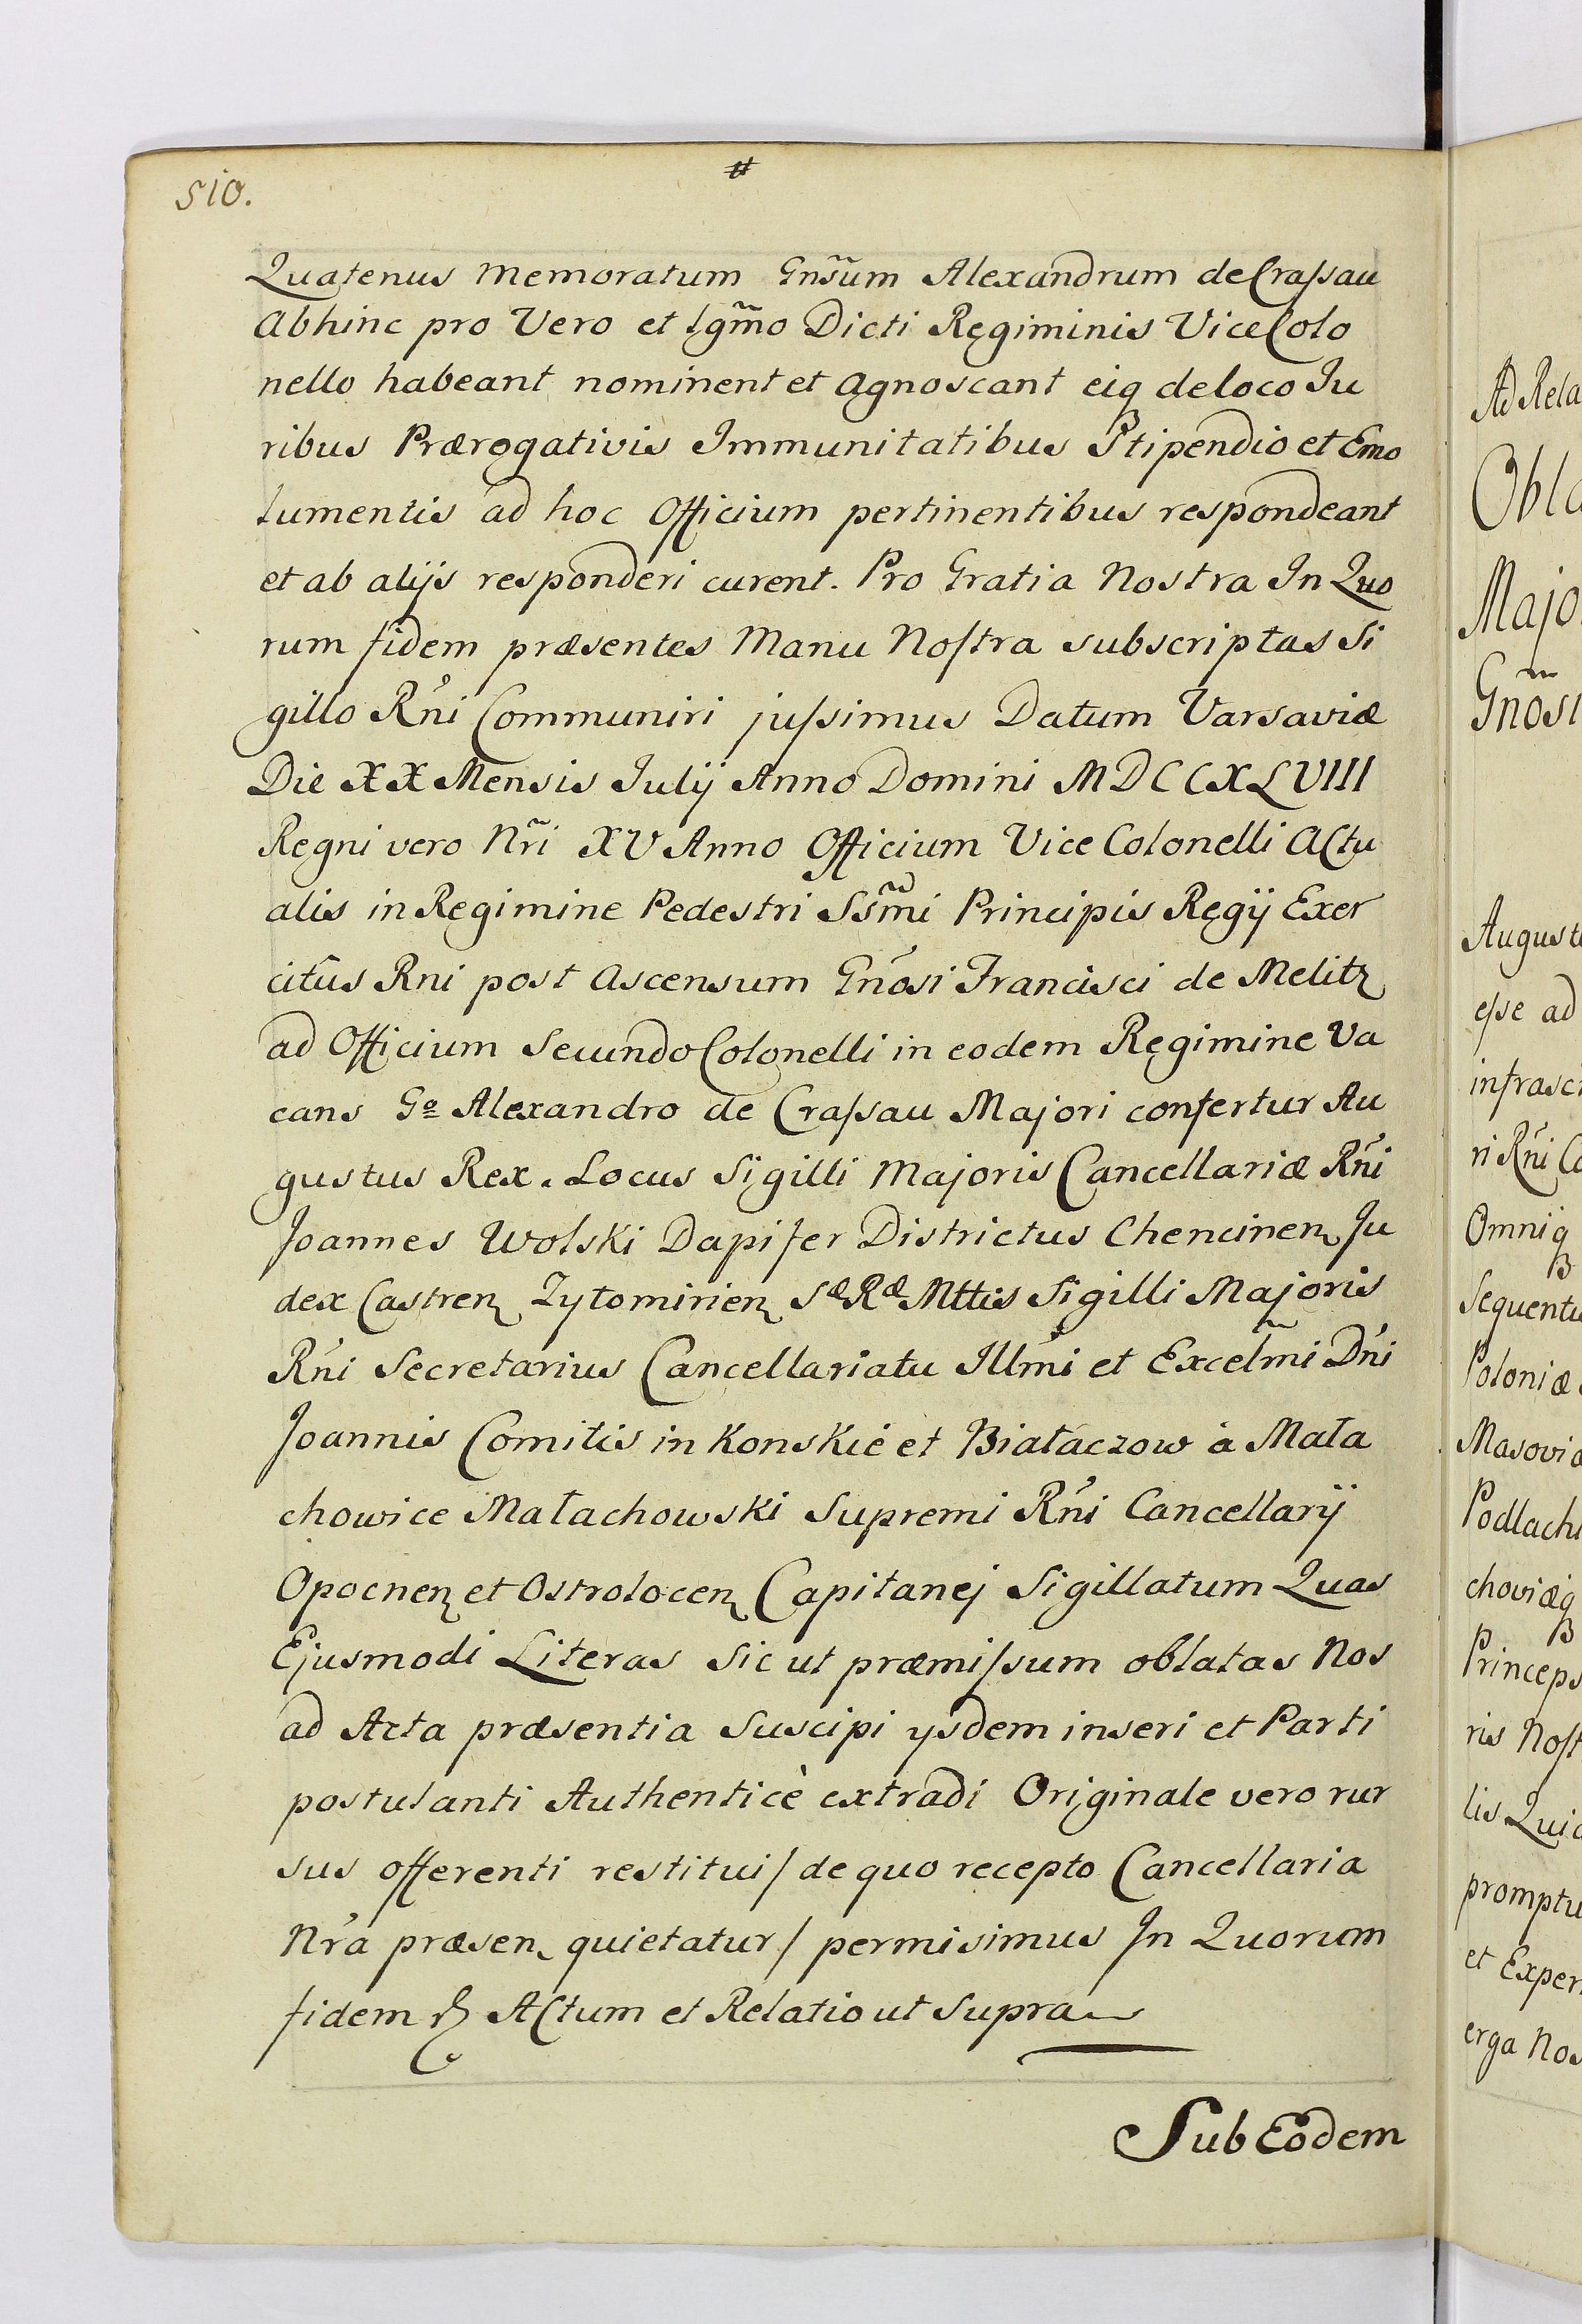 510.
Quatenus memoratum Gnsũm Alexandrum de Crassau
Abhinc pro Vero et lgm̃o Dicti Regiminis ViceColo
nello habeant nominent et agnoscant eiq deloco Ju
ribus Prærogativis Immunitatibus Stipendio et Emo
lumentis ad hoc Officium pertinentibus respondeant
et ab alijs responderi curent. Pro Gratia Nostra In Quo
rum fidem præsentes Manu Nostra subscriptas Si
gillo Rńi Communiri jussimus Datum Varsaviæ
Die XX Mensis Julij Anno Domini MDCCXLVIII
Regni vero Nr̃i XV Anno Officium Vice Colonelli Actu
alis in Regimine Pedestri Ssm̃i Principis Regij Exer
citûs Rni post ascensum Gńosi Francisci de Melitz
ad Officium Secundo Colonelli in eodem Regimine Va
cans Gº Alexandro de Crassau Majori confertur Au
gustus Rex. Locus Sigilli Majoris Cancellariæ Rńi
Joannes Wolski Dapifer Districtus Chencinen Ju
dex Castren Zytomirien Sæ Ræ Mttis Sigilli Majoris
Rńi Secretarius Cancellariatu Illm̃i et Excelm̃i Dńi
Joannis Comitis in Konskie et Białaczow à Mała
chowice Małachowski Supremi Rńi Cancellarij
Opocnen et Ostrolocen Capitanej Sigillatum Quas
Ejusmodi Literas Sic ut præmissum oblatas Nos
ad Acta præsentia Suscipi ysdem inseri et Parti
postulanti Authenticè extradi Originale vero rur
sus offerenti restitui / de quo recepto Cancellaria
Nŕa præsen quietatur / permisimus In Quorum
fidem Actum et Relatio ut Supra
Sub Eodem
Ad Rela
Obla
Majo
Gñosi
Augustu
esse ad
infrascr
ri Rńi Ca
Omniq
Sequentu
Poloniæ
Masoviæ
Podlachi
choviæq
Princeps
ris Nost
lis Quia
promptu
et Exper
erga Nos